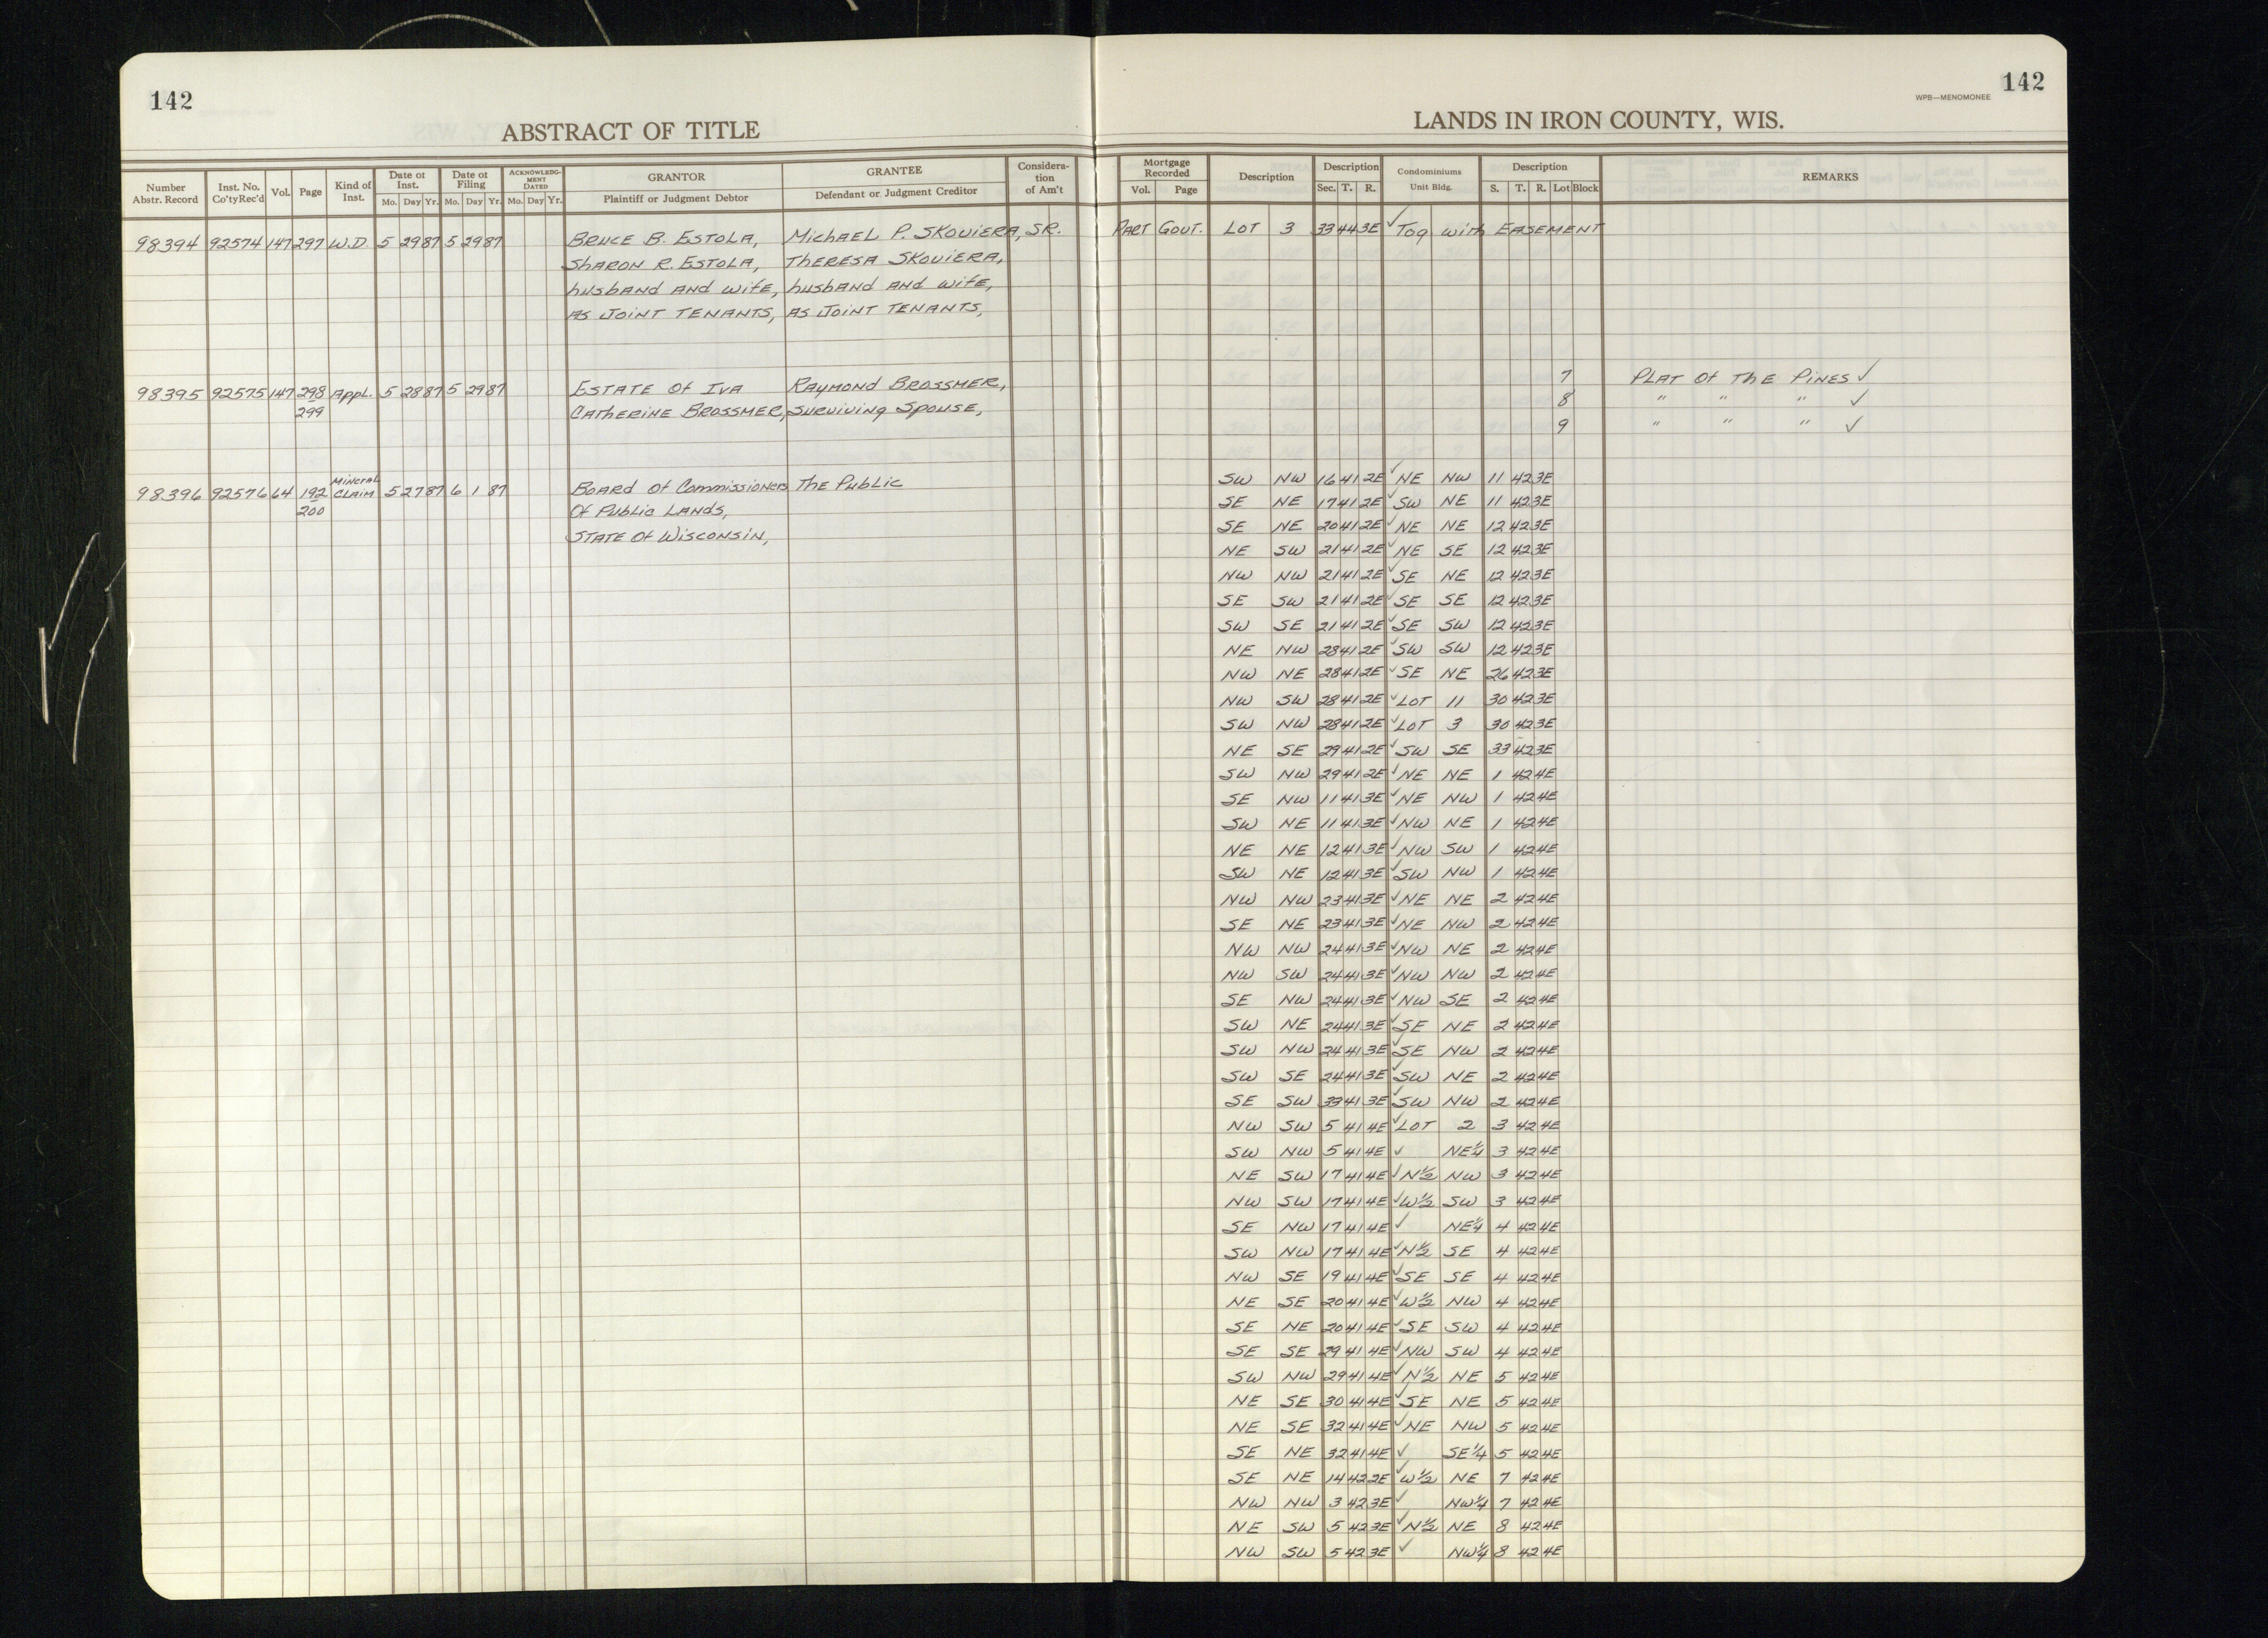 142
142
WPB—MENOMONEE
ABSTRACT OF TITLE
LANDS IN IRON COUNTY, WIS.
Number Abstr. Record | Inst. No. Co'tyRec'd | Vol. | Page | Kind of Inst. | Date of Inst. Mo. Day Yr. | Date of Filing Mo. Day Yr. | ACKNOWLEDGMENT DATED Mo. Day Yr. | GRANTOR Plaintiff or Judgment Debtor | GRANTEE Defendant or Judgment Creditor | Considera-tion of Am't | Mortgage Recorded Vol. Page | Description | Description Sec. T. R. | Condominiums Unit Bldg. | Description S. T. R. Lot Block | REMARKS
98394 92574 147 297 W.D. 5 29 87 5 29 87 BRUCE B. ESTOLA, MichAEL P. SKOVIERA, SR. PART GOVT. LOT 3 33 44 3E ✓ Tog with EASEMENT
ShARON R. ESTOLA, ThERESA SKOVIERA,
husbANd ANd wifE, husbANd ANd wifE,
AS JOINT TENANTS, AS JOINT TENANTS,
98395 92575 147 298 Appl. 5 28 87 5 29 87 ESTATE Of IVA RAYMOND BROSSMER, 7 PLAT Of ThE PINES ✓
299 CAThERINE BROSSMER, SURVIVING SPOUSE, 8 " " " ✓
9 " " " ✓
98396 92576 64 192 MINERAL CLAIM 5 27 87 6 1 87 BOARD Of COMMISSIONERS ThE PUBLIC SW NW 16 41 2E ✓ NE NW 11 42 3E
200 Of PUBLIC LANDS, SE NE 17 41 2E ✓ SW NE 11 42 3E
STATE Of WISCONSIN, SE NE 20 41 2E ✓ NE NE 12 42 3E
NE SW 21 41 2E ✓ NE SE 12 42 3E
NW NW 21 41 2E ✓ SE NE 12 42 3E
SE SW 21 41 2E ✓ SE SE 12 42 3E
SW SE 21 41 2E ✓ SE SW 12 42 3E
NE NW 28 41 2E ✓ SW SW 12 42 3E
NW NE 28 41 2E ✓ SE NE 26 42 3E
NW SW 28 41 2E ✓ LOT 11 30 42 3E
SW NW 28 41 2E ✓ LOT 3 30 42 3E
NE SE 29 41 2E ✓ SW SE 33 42 3E
SW NW 29 41 2E ✓ NE NE 1 42 4E
SE NW 11 41 3E ✓ NE NW 1 42 4E
SW NE 11 41 3E ✓ NW NE 1 42 4E
NE NE 12 41 3E ✓ NW SW 1 42 4E
SW NE 12 41 3E ✓ SW NW 1 42 4E
NW NW 23 41 3E ✓ NE NE 2 42 4E
SE NE 23 41 3E ✓ NE NW 2 42 4E
NW NW 24 41 3E ✓ NW NE 2 42 4E
NW SW 24 41 3E ✓ NW NW 2 42 4E
SE NW 24 41 3E ✓ NW SE 2 42 4E
SW NE 24 41 3E ✓ SE NE 2 42 4E
SW NW 24 41 3E ✓ SE NW 2 42 4E
SW SE 24 41 3E ✓ SW NE 2 42 4E
SE SW 33 41 3E ✓ SW NW 2 42 4E
NW SW 5 41 4E ✓ LOT 2 3 42 4E
SW NW 5 41 4E ✓ NE¼ 3 42 4E
NE SW 17 41 4E ✓ N½ NW 3 42 4E
NW SW 17 41 4E ✓ W½ SW 3 42 4E
SE NW 17 41 4E ✓ NE¼ 4 42 4E
SW NW 17 41 4E ✓ N½ SE 4 42 4E
NW SE 19 41 4E ✓ SE SE 4 42 4E
NE SE 20 41 4E ✓ W½ NW 4 42 4E
SE NE 20 41 4E ✓ SE SW 4 42 4E
SE SE 29 41 4E ✓ NW SW 4 42 4E
SW NW 29 41 4E ✓ N½ NE 5 42 4E
NE SE 30 41 4E ✓ SE NE 5 42 4E
NE SE 32 41 4E ✓ NE NW 5 42 4E
SE NE 32 41 4E ✓ SE¼ 5 42 4E
SE NE 14 42 2E ✓ W½ NE 7 42 4E
NW NW 3 42 3E ✓ NW¼ 7 42 4E
NE SW 5 42 3E ✓ N½ NE 8 42 4E
NW SW 5 42 3E ✓ NW¼ 8 42 4E